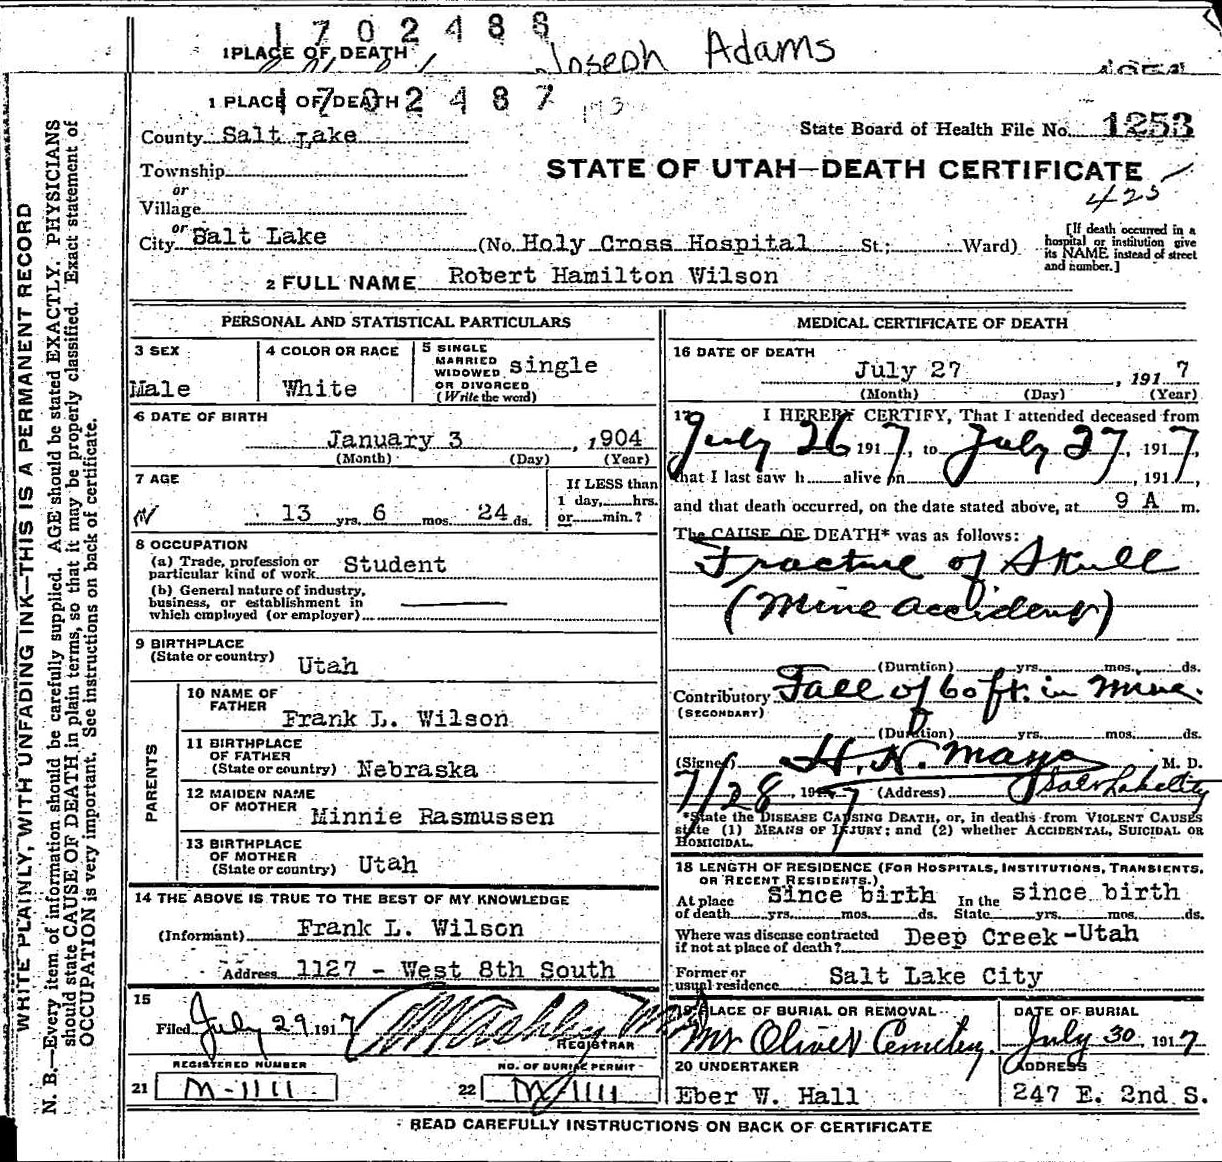 1702488
1 PLACE OF DEATH
Joseph Adams
1702487
1 PLACE OF DEATH
County Salt Lake
State Board of Health File No. 1253
STATE OF UTAH—DEATH CERTIFICATE
425
Township
or
Village
or
City Salt Lake (No. Holy Cross Hospital St.; Ward)
[If death occurred in a
hospital or institution give
its NAME instead of street
and number.]
2 FULL NAME Robert Hamilton Wilson
PERSONAL AND STATISTICAL PARTICULARS
3 SEX
Male
4 COLOR OR RACE
White
5 SINGLE
MARRIED
WIDOWED
OR DIVORCED
(Write the word)
single
6 DATE OF BIRTH
January 3, 1904
(Month) (Day) (Year)
7 AGE
13 yrs. 6 mos. 24 ds.
If LESS than
1 day, hrs.
or min.?
8 OCCUPATION
(a) Trade, profession or
particular kind of work Student
(b) General nature of industry,
business, or establishment in
which employed (or employer)
9 BIRTHPLACE
(State or country) Utah
PARENTS
10 NAME OF
FATHER Frank L. Wilson
11 BIRTHPLACE
OF FATHER
(State or country) Nebraska
12 MAIDEN NAME
OF MOTHER Minnie Rasmussen
13 BIRTHPLACE
OF MOTHER
(State or country) Utah
14 THE ABOVE IS TRUE TO THE BEST OF MY KNOWLEDGE
(Informant) Frank L. Wilson
Address 1127 - West 8th South
15
Filed July 29 1917
REGISTRAR
REGISTERED NUMBER
21 M-1111
NO. OF BURIAL PERMIT
22 M-1111
MEDICAL CERTIFICATE OF DEATH
16 DATE OF DEATH
July 27, 1917
(Month) (Day) (Year)
17 I HEREBY CERTIFY, That I attended deceased from
July 26 1917, to July 27, 1917,
that I last saw h alive on , 191 ,
and that death occurred, on the date stated above, at 9 A m.
The CAUSE OF DEATH* was as follows:
Fracture of Skull
(Mine accident)
(Duration) yrs. mos. ds.
Contributory Fall of 60 ft. in Mine.
(SECONDARY)
(Duration) yrs. mos. ds.
(Signed) H. N. Mayo M. D.
7/28, 1917 (Address) Salt Lake City
*State the DISEASE CAUSING DEATH, or, in deaths from VIOLENT CAUSES
state (1) MEANS OF INJURY; and (2) whether ACCIDENTAL, SUICIDAL OR
HOMICIDAL.
18 LENGTH OF RESIDENCE (FOR HOSPITALS, INSTITUTIONS, TRANSIENTS,
OR RECENT RESIDENTS.)
At place Since birth In the since birth
of death yrs. mos. ds. State yrs. mos. ds.
Where was disease contracted
if not at place of death? Deep Creek-Utah
Former or
usual residence Salt Lake City
19 PLACE OF BURIAL OR REMOVAL
Mt Olivet Cemetery.
DATE OF BURIAL
July 30 1917
20 UNDERTAKER
Eber W. Hall
ADDRESS
247 E. 2nd S.
READ CAREFULLY INSTRUCTIONS ON BACK OF CERTIFICATE
WRITE PLAINLY, WITH UNFADING INK—THIS IS A PERMANENT RECORD
N. B.—Every item of information should be carefully supplied. AGE should be stated EXACTLY. PHYSICIANS
should state CAUSE OF DEATH in plain terms, so that it may be properly classified. Exact statement of
OCCUPATION is very important. See instructions on back of certificate.